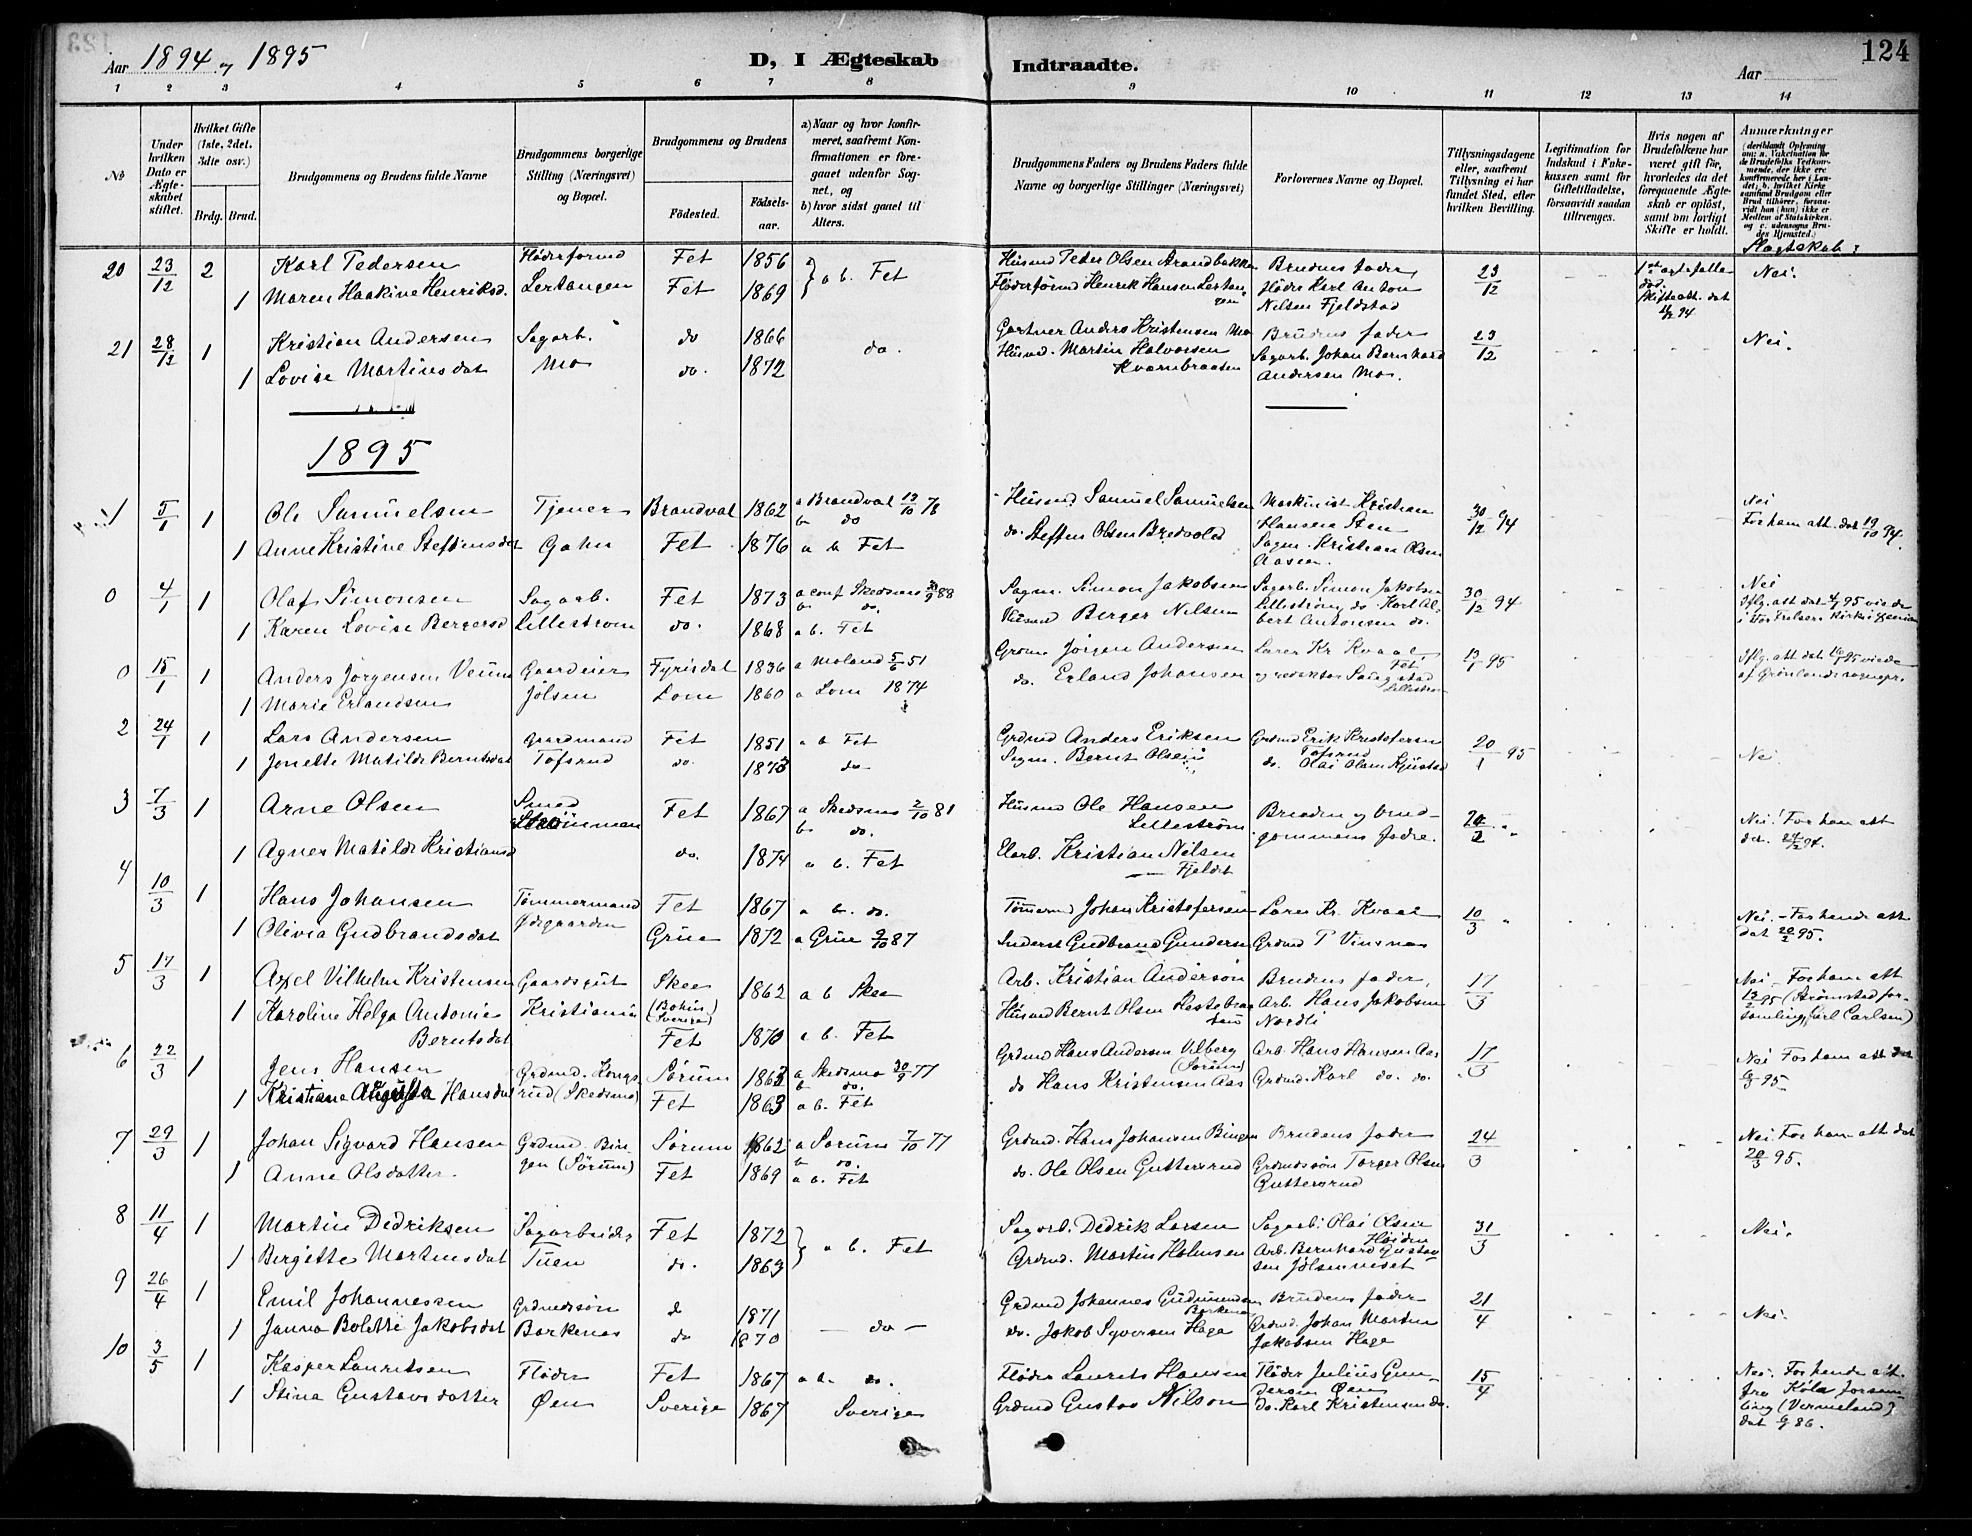 Aar 1894 og 1895
D, I Ægteskab Indtraadte.
Aar
124
1 2 3 4 5 6 7 8 9 10 11 12 13 14
No
Under hvilken Dato er Ægteskabet stiftet.
Hvilket Gifte (1ste, 2det, 3die osv.)
Brdg. Brud.
Brudgommens og Brudens fulde Navne
Brudgommens borgerlige Stilling (Næringsvei) og Bopæl.
Brudgommens og Brudens
Fødested.
Fødselsaar.
a) Naar og hvor konfirmeret, saafremt Konfirmationen er foregaaet udenfor Sognet, og
b) hvor sidst gaaet til Alters.
Brudgommens Faders og Brudens Faders fulde Navne og borgerlige Stillinger (Næringsvei)
Forlovernes Navne og Bopæl.
Tillysningsdagene eller, saafremt Tillysning ei har fundet Sted, efter hvilken Bevilling.
Legitimation for Indskud i Enkekassen samt for Giftetilladelse, forsaavidt saadan tiltrænges.
Hvis nogen af Brudefolkene har været gift før, hvorledes da det foregaaende Ægteskab er opløst, samt om lovligt Skifte er holdt.
Anmærkninger
Slagtskab:
20 23/12 2 Karl Pedersen Fløderformd Fet 1856 a b. Fet Husmd Peder Olsen Strandbakken Brudens fader, 23/12 1ste ægtefælle død. Skifteatt. dat Nei.
1 Maren Haakine Henriksd. Lertangen Fet 1869 Fløderformd Henrik Hansen Lertangen Fløder Karl Anton Nelsen Fjeldstad
21 28/12 1 Kristian Andersen Sagarb. do 1866 do. Gartner Anders Kristensen Mo Brudens fader 23/12 Nei.
1 Lovise Martinsdat Mo do. 1872 Husmd. Martin Halvorsen Kvernbraaten Sagarb. Johan Bernhard Andersen Mo.
1895
1 5/1 1 Ole Samuelsen Tjener Brandval 1862 a Brandval 13/10 78 b do Husmd Samuel Samuelsen Maskinist Kristian Hansen Sten 30/12 94 Nei
1 Anne Kristine Steffensdat Gahn Fet 1876 a b Fet do. Steffen Olsen Bredvold Sagm. Kristian Olsen Aaseen. For ham att. dat 19/10 94.
0 4/1 1 Olaf Simonsen Sagarb. Fet 1873 a conf Skedsmo 30/9 88 b do. Sagm. Simon Jakobsen Sagarb. Simon Jakobsen 30/12 94 Nei
1 Karen Lovise Bergersd Lillestrøm do. 1868 a b. Fet Husmd Berger Nilsen Lillestrøm, do Karl Albert Antonsen do. Iflg. att dat 4/1 95 viede i Vor Frelsers Kirke
0 15/1 1 Anders Jørgensen Veum Gaardeier Fyrisdal 1836 a Moland 5/6 51 Grdmd Jørgen Andersen Lærer Kr. Kvaal Fet 13/1 95 Iflg. att dat 16/1 95 viede
1 Marie Erlandsen Jølsen Lom 1860 a Lom 1874 do. Erland Johansen og redaktør Saugstad Lillestrøm af Grønlands sognepr.
2 24/1 1 Lars Andersen Gaardmand Fet 1851 a b Fet Grdmd Anders Eriksen Grdmd Erik Kristofersen Tofsrud 20/1 95 Nei
1 Jonette Matilde Berntsdat Tofsrud do. 1873 do Sagm. Bernt Olsen do. Olai Olsen
3 7/3 1 Arne Olsen Smed Strømmen Fet 1867 a Skedsmo 2/10 81 b do. Husmd Ole Hansen Lillestrøm Brudens og brudgommens fædre. 24/2 " Nei. For ham att
1 Agnes Matilde Kristiansd do. 1874 a b. Fet Elarb. Kristian Nilsen Fjeldet dat. 24/2 94.
4 10/3 1 Hans Johansen Tømmermand Fet 1867 a b. do. Tømmermd Johan Kristofersen Lærer Kr. Kvaal 10/3 " Nei. - For hende att
1 Olivia Gudbrandsdat Ødegaarden Grue 1872 a Grue 9/10 87 Inderst Gudbrand Gundersen Grdmd P Vinsnes dat 20/2 95.
5 17/3 1 Axel Vilhelm Kristensen Gaardsgut Skee (Bohus.) (Sverige) 1862 a b Skee Arb. Kristian Andersön Brudens fader, 17/3 Nei - For ham att
1 Karoline Helga Antonie Berntsdat Kristiania Fet 1870 a b. Fet Husmd Bernt Olsen Hestebraaten Arb. Hans Jakobsen Nordli 13/2 95 (Strømstad forsamling, Carl Carlsen)
6 22/3 1 Jens Hansen Grdmd. Kongsrud (Skedsmo) Sørum 1863 a Skedsmo 30/9 77 b do. Grdmd Hans Andersen Vilberg (Sørum) Arb. Hans Hansen Aas 17/3 Nei For ham att dat
1 Kristiane Augusta Hansdat Fet 1863 a b. Fet do Hans Kristensen Aas Grdmd. Karl do. do. 6/3 95.
7 29/3 1 Johan Sigvard Hansen Grdmd. Bingen (Sørum) Sørum 1862 a Sørum 7/10 77 b do. Grdmd. Hans Johansen Bingen Brudens fader 24/3 Nei. For ham att dat
1 Anne Olsdatter. Fet 1869 a b. Fet do. Ole Olsen Guttersrud Grdmdssøn Torger Olsen Guttersrud 20/3 95.
8 11/4 1 Martin Dedriksen Sagarbeider Fet 1872 a b. Fet Sagarb. Dedrik Larsen Sagarb. Olai Olsen Høiden 31/3 Nei.
1 Bergitte Martinsdat Tuen do. 1863 Grdmd. Martin Halvorsen Arb. Bernhard Gustavsen Jølseneset
9 26/4 1 Emil Johannessen Grdmdssøn do 1871 Grdmd Johannes Gudmundsen Barkenes Brudens fader 21/4 Nei.
1 Janna Bolette Jakobsdat Barkenes do 1870 - do - do. Jakob Syversen Hage Grdmd. Johan Martin Jakobsen Hage
10 3/5 1 Kasper Lauritsen Fløder Fet 1867 a b. do. Fløder Laurits Hansen Fløder Julius Gundersen Øen 15/4 Nei. For hende att.
1 Stina Gustavsdatter Øen Sverige 1867 Sverige Grdmd Gustav Nilson do. Karl Kristensen do. fra Køla forsamling (Vermeland) dat 86.